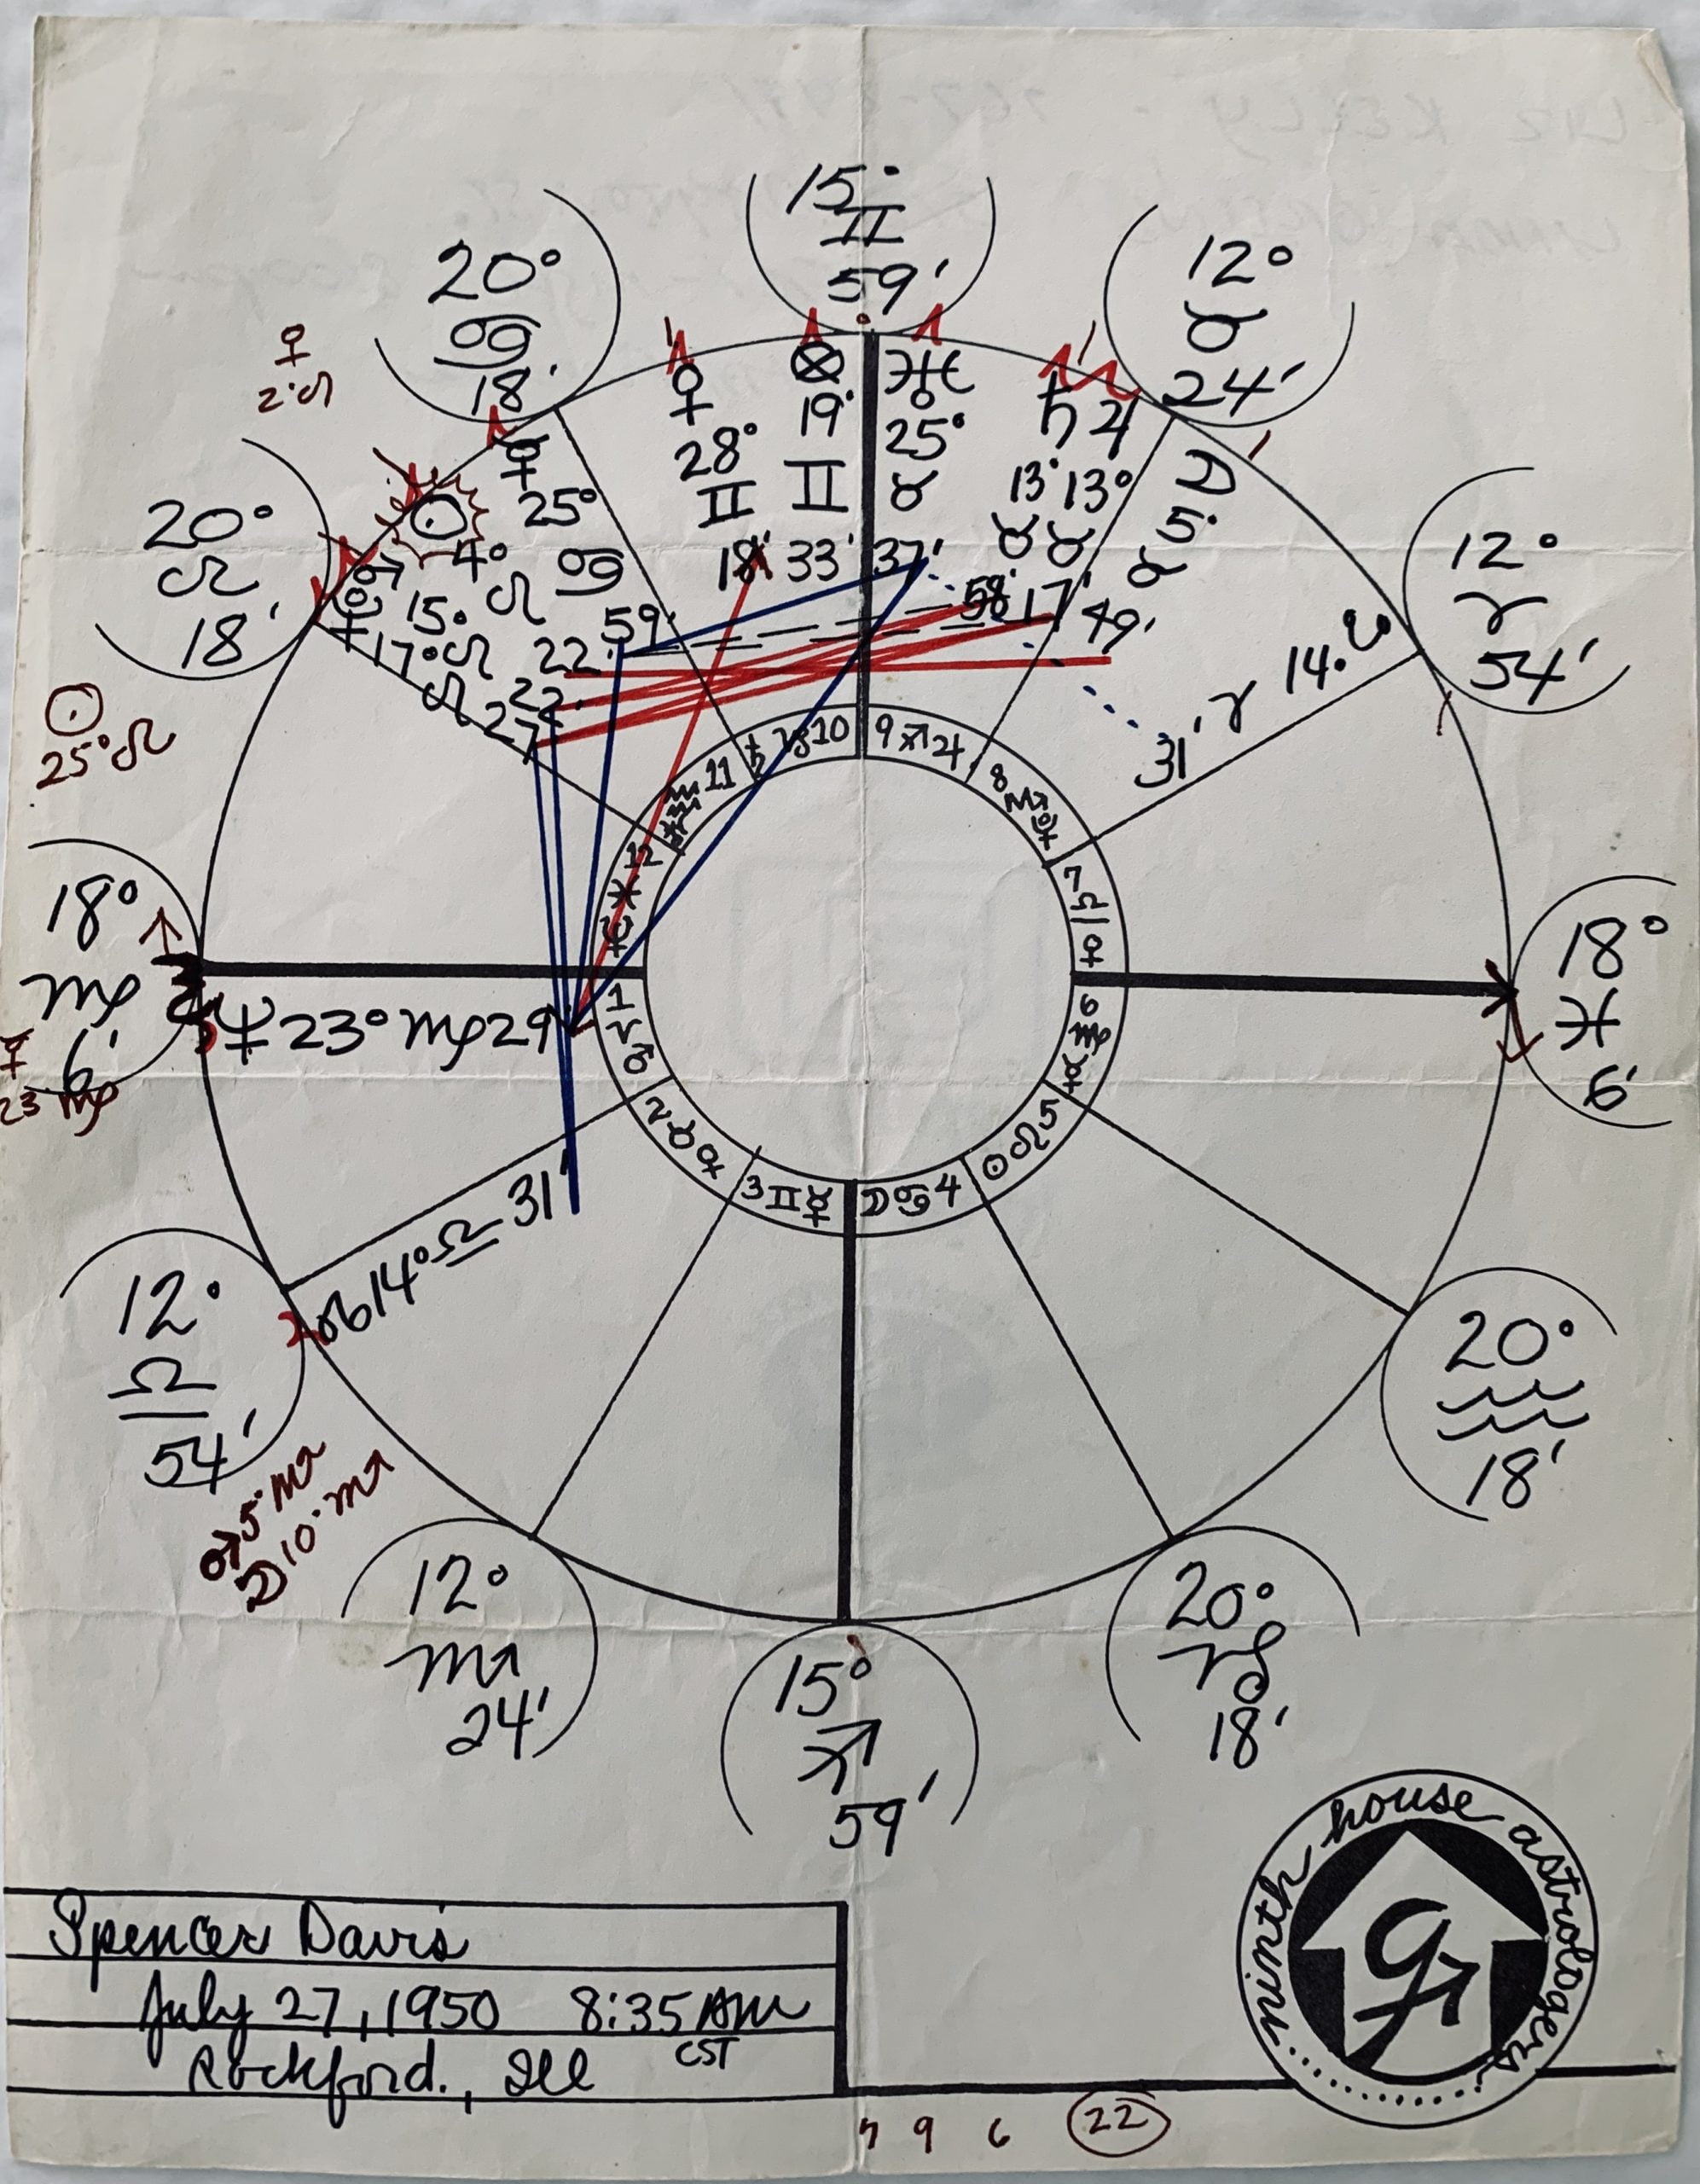 15°
♊
59'
20°
♋
18'
12°
♉
24'
♀
2°♌
20°
♌
18'
12°
♈
54'
☿
25°
♋
59'
♀
28°
♊
18'
⊗
19°
♊
33'
♅
25°
♉
37'
♄ ♃
13° 13°
♉ ♉
58' 17'
☽
5°
♉
49'
☉
4°
♌
22'
♂
15°
♌
22'
♇
17°
♌
27'
☋ 14°
♈
31'
☉
25°♌
18°
♍
6'
☿
23 ♍
♆ 23° ♍ 29'
18°
♓
6'
10 ♑ ♄
9 ♐ ♃
8 ♏ ♇
7 ♎ ♀
6 ♍ ☿
5 ♌ ☉
4 ♋ ☽
3 ♊ ☿
2 ♉ ♀
1 ♈ ♂
12 ♓ ♆
11 ♒ ♅
☊ 14° ♎ 31'
12°
♎
54'
♂ 5° ♏
☽ 10° ♏
12°
♏
24'
15°
♐
59'
20°
♑
18'
20°
♒
18'
Spencer Davis
July 27, 1950 8:35 AM
CST
Rockford., Ill
ninth house astrologers
9
9 6 22